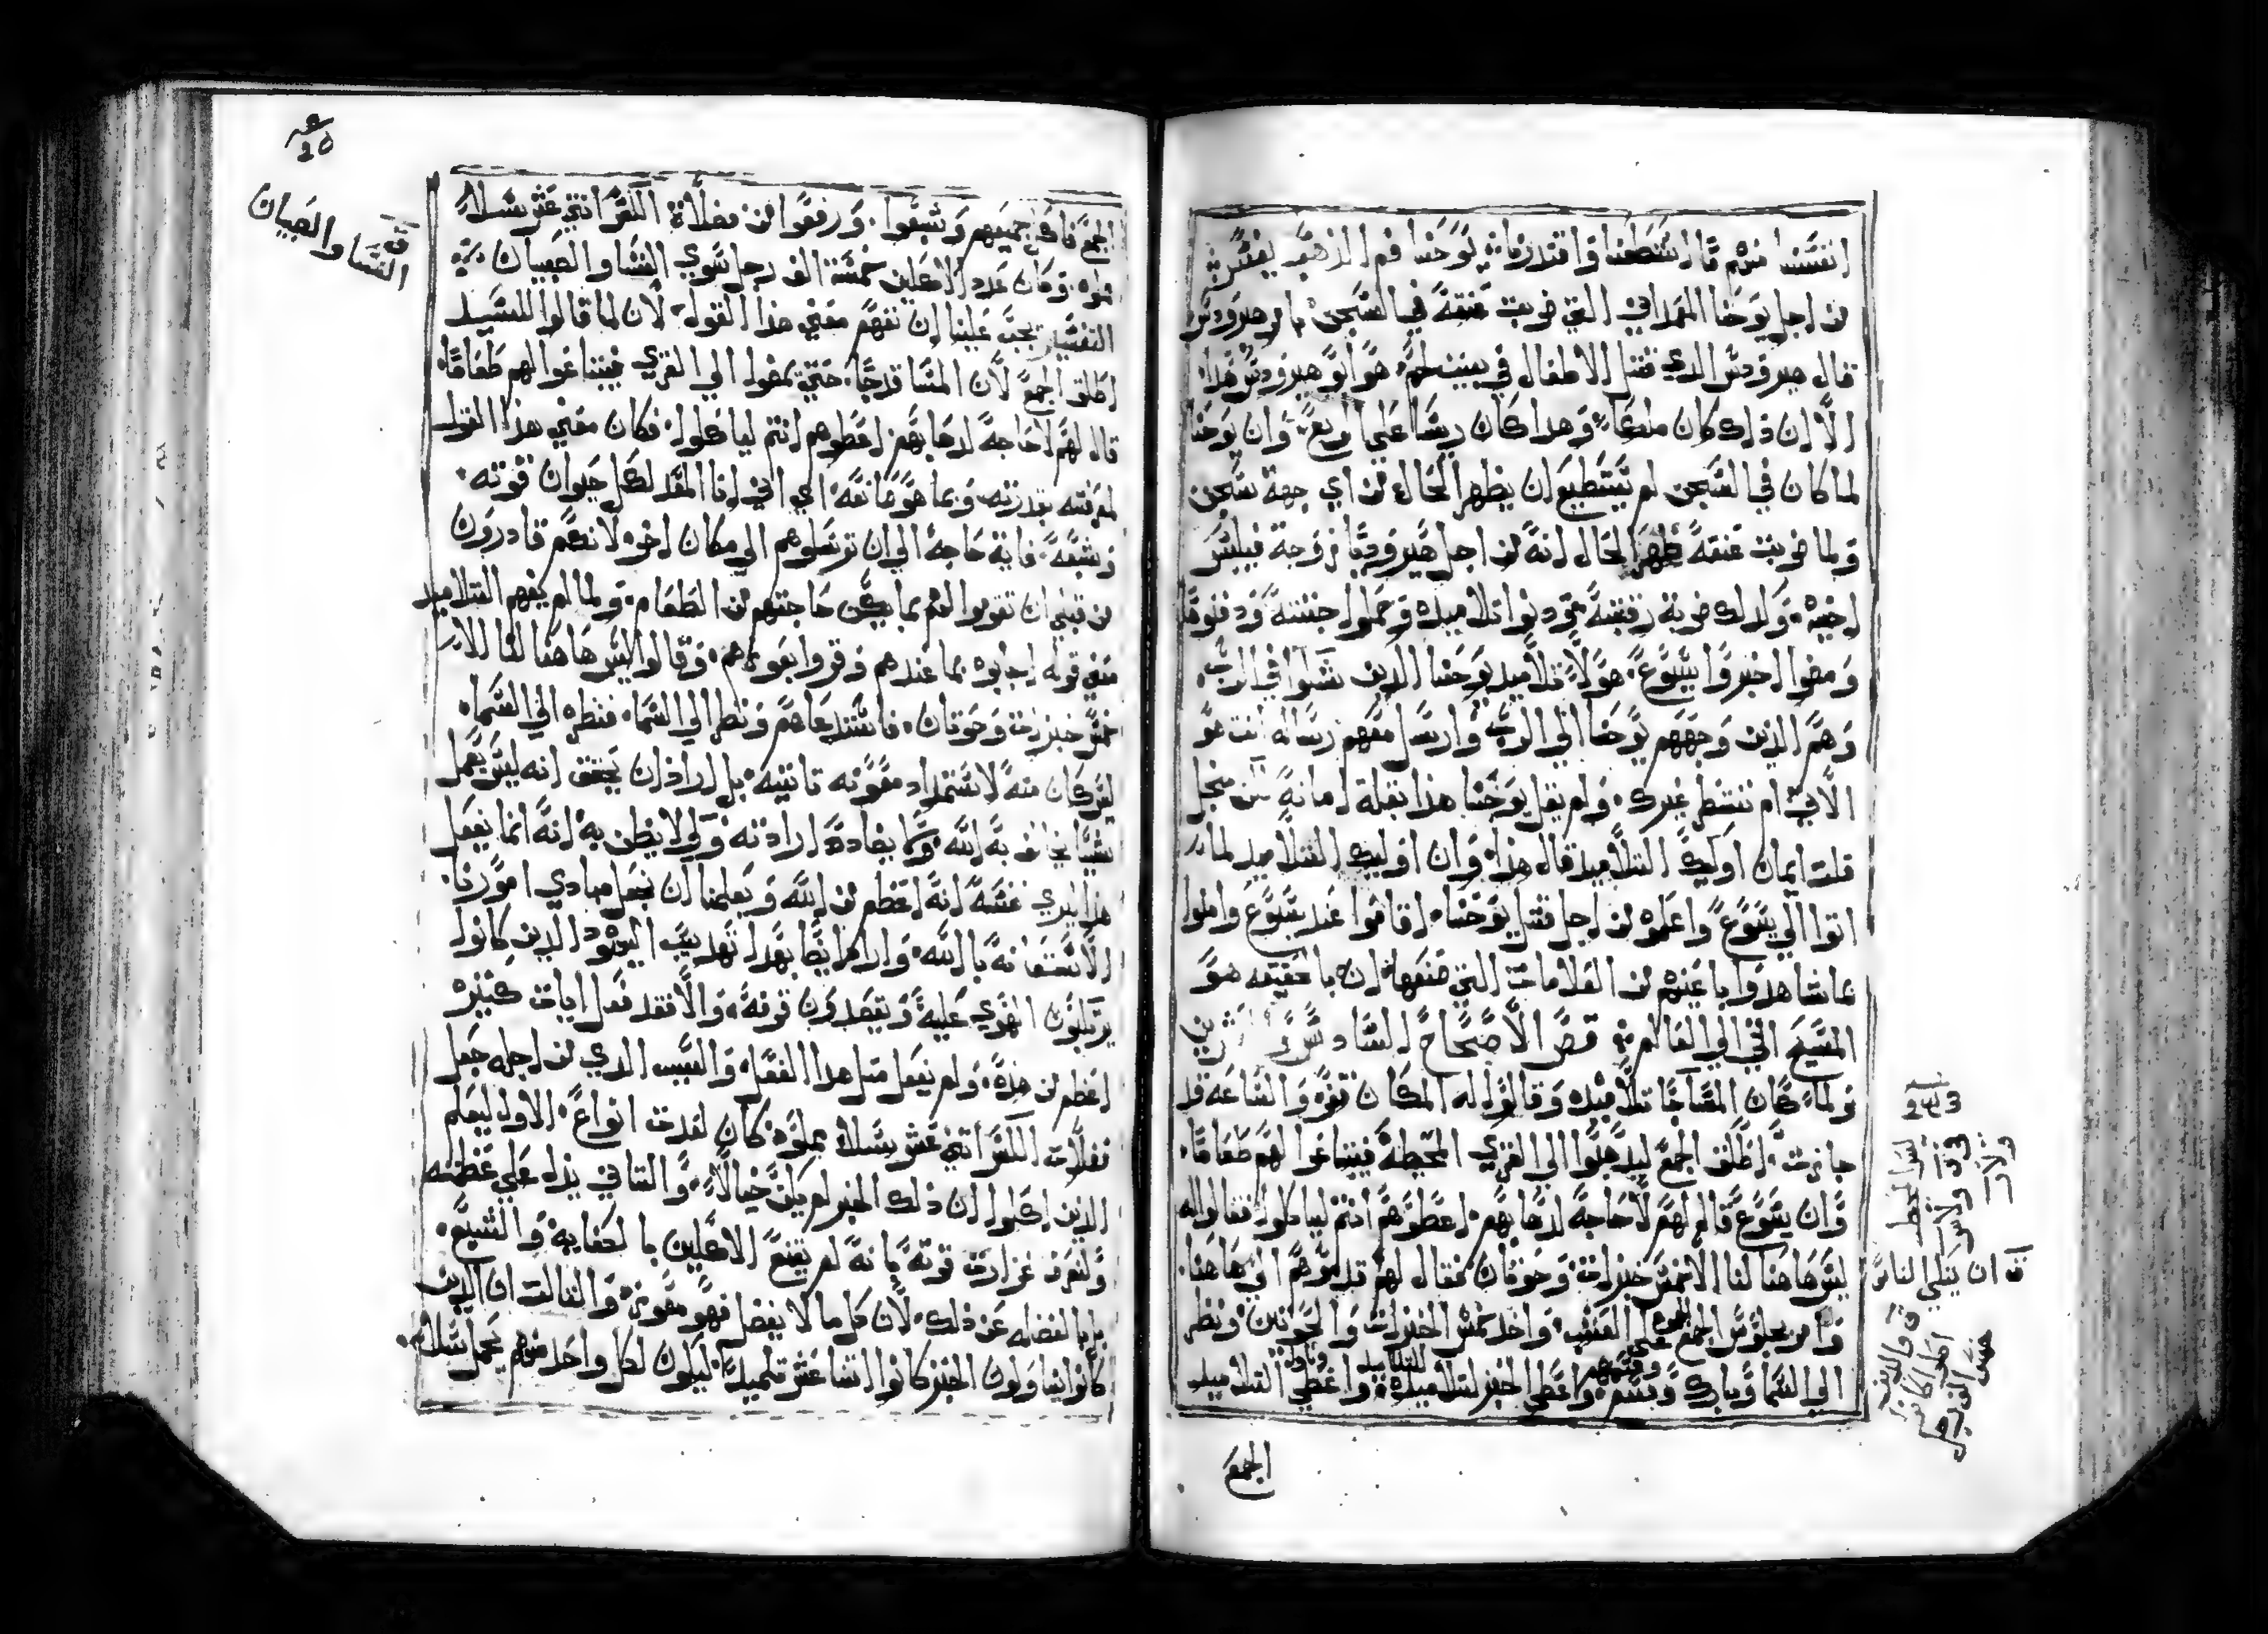 اقتبسنا منهم ما استطعنا واقتدرنا ليوحنا فم الذهب يفسر
من اجل يوحنا المعمداني التي ضربت عنقه في السجن بامر هيرودس
قال هيرودس الدي قتل الاطفال في بيت لحم هو ابو هيرودس هدا
الا ان ذلك كان ملكا وهدا كان ريسا علي الربع وان يوحنا
لما كان في السجن لم يستطيع ان يظهر الحال من اي جهة سجن
ولما ضربت عنقه ظهر الحال انه من اجل هيروديا زوجة فيلبس
اخيه ولدلك ضربة رقبته ودنوا تلاميده وحملوا جتته ودفنوها
ومضوا اخبروا يسوع هولا تلاميد يوحنا الدين سالوا في الرب
وهم الدين وجههم يوحنا الي الرب وارسل معهم رساله انت هو
الاتي ام ننتظر غيرك ولم يقل يوحنا هدا بقلة امانه لكن من اجل
قلت ايمان اوليك التلاميد قال هدا وان اوليك التلاميد لما
اتوا الي يسوع واعلموه من اجل قتل يوحنا اقاموا عند يسوع وامنوا
بما شاهدوا باعينهم من العلامات التي صنعها ان بالحقيقه هو
المسيح الاتي الي العالم قص الاصحاح السادس
ولما كان المسا جا تلاميده وقالوا له المكان قفر والساعه قد
جازت اطلق الجمع ليدهبوا الي القري المحيطه فيبتاعوا لهم طعاما
وان يسوع قال لهم لا حاجه لدهابهم اعطوهم انتم لياكلوا فقالوا له
ليس هاهنا لنا الا خمس خبزات وحوتان فقال لهم قدموهم الي هاهنا
وامر بجلوس الجمع علي العشب واخد الخمس الخبزات والحوتين ونظر
الي السما وبارك وقسم واعطي الخبز لتلاميده واعطي التلاميد
الجمع
ق ان يتكي الناس
النسا والصبيان
الجمع فاكل جميعهم وشبعوا ورفعوا من فضلاة الكسر اتني عشر سله
مملوه وكان عدد الاكلين خمسة الف رجل سوي النسا والصبيان
التفسير يجب علينا ان نفهم معني هدا القول لان لما قالوا للسيد
اطلق الجمع لان المسا قد جا حتي يمضوا الي القري فيبتاعوا لهم طعاما
قال لهم لا حاجه لدهابهم اعطوهم انتم لياكلوا فكان معني هدا القول
لمعرفته بقدرته وبما هو صانعه اي اني انا المعد لكل حيوان قوته
وشبعه فاية حاجه الي ان ترسلوهم الي مكان اخر لانكم قادرون
من قبلي ان تقوموا لهم بما يكفي حاجتهم من الطعام ولما لم يفهم التلاميد
معني قوله اجابوه بما عندهم وقروا بعوزهم وقالوا ليس هاهنا لنا الا
خمس خبزات وحوتان فاستدعاهم ونظر الي السما فنظره الي السما
ليس كان منه لاستمداد معونه تانيه بل اراد ان يحقق انه ليس يعمل
شيا يخالف به الله وما يضادد ارادته ولا يظن به انه انما يفعل
هدا ليري نفسه انه اعظم من الله ويعلمنا ان نجعل مبادي امورنا
الاستعانه بالله واراد ايضا بهدا تهديب اليهود الدين كانوا
عليه ويقصدون قوته والا فقد فعل ايات كتيره
اعظم من هده ولم يفعل متل هدا الفعل والسبب الدي من اجله جعل
فضلات الكسر اتني عشر سله مملوه كان لعدت انواع الاول ليعلم
الدين اكلوا ان ذلك الخبز لم يكن خيالا والتاني يدل علي عظمته
ولتعرف غزارت قوته بانه لم يقنع الاكلين بالكفايه والشبع
بل بالفضله عن ذلك لان كل ما لا يفضل فهو معوز والتالت ان الدين
كانوا يناولون الخبز كانوا اتنا عشر تلميد ليكون لكل واحد منهم يحمل سله